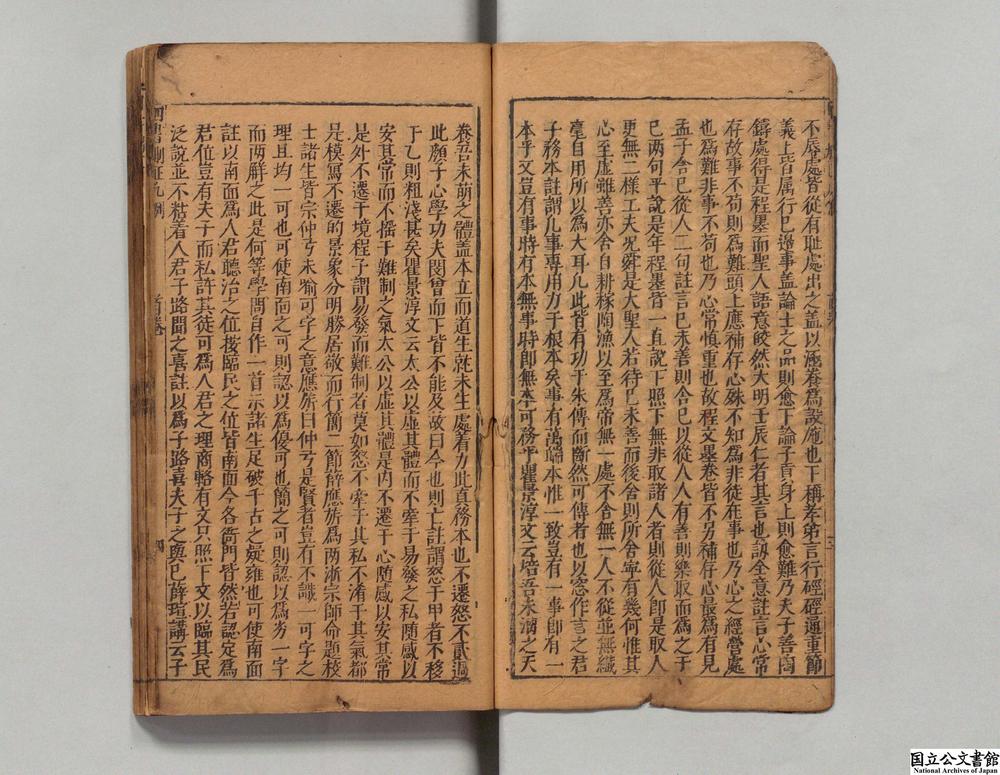 不辱處皆從有耻處出之蓋以涵養為設施也下稱孝弟言行硜硜通重節
義上皆属行己邊事蓋論士之品則愈下論子貢身上則愈難乃夫子善陶
鑄處得是程墨而聖人語意皎然大明壬辰仁者其言也訒全意註言心常
存故事不苟則為難頭上應補存心殊不知為非徒在事也乃心之經營處
也為難非事不苟也乃心常慎重也故程文墨卷皆不另補存心最為有見
孟子舍己從人二句註言己未善則舍己以從人人有善則樂取而為之于
己两句平說是年程墨皆一直說下照下無非取諸人者則從人即是取人
更無二樣工夫况舜是大聖人若待己未善而後舍則所舍寧有幾何惟其
心至虛雖善亦舍自耕稼陶漁以至為帝無一處不舍無一人不從並無纖
毫自用所以為大耳凡此皆有功于朱傳而斷然可傳者也以窓作言之君
子務本註謂凡事專用力于根本矣事有萬端本惟一致豈有一事即有一
本乎又豈有事時有本無事時即無本可務乎瞿景淳文云培吾未漓之天
卷吾未萌之體盖本立而道生就未生處着力此真務本也不遷怒不貳過
此顏子心學功夫閔曾而下皆不能及故曰今也則亡註謂怒于甲者不移
于乙則粗淺甚矣瞿景淳文云太公以虛其體而不牽于易發之私随感以
安其常而不搖于難制之氣太公以虛其體是内不遷于心随感以安其常
是外不遷于境程子謂易發而難制者莫如怒不牽于其私不淆于其氣都
是模寫不遷的景象分明勝居敬而行簡二節觧應旂為两浙宗師命題校
士諸生皆宗仲弓未喻可字之意應旂曰仲弓是賢者豈有不識一可字之
理且均一可也可使南面之可則認以為優可也簡之可則認以為劣一字
而两觧之此是何等學問自作一首示諸生足破千古之疑雍也可使南面
註以南面為人君聽治之位按臨民之位皆南面今各衙門皆然若認定為
君位豈有夫子而私許其徒可為人君之理商輅有文只照下文以臨其民
泛說並不粘着人君子路聞之喜註以為子路喜夫子之與己薛瑄講云子
四書
首卷
四
三
国立公文書館
National Archives of Japan